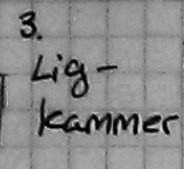 3.
Lig-
kammer